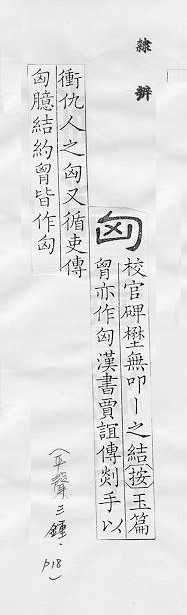 隸辨
匈
校官碑壄無叩丨之結按玉篇
胷亦作匈漢書賈誼傳剡手以
衝仇人之匈又循吏傳
匈臆結約胷皆作匈
（平聲三鍾．p18）